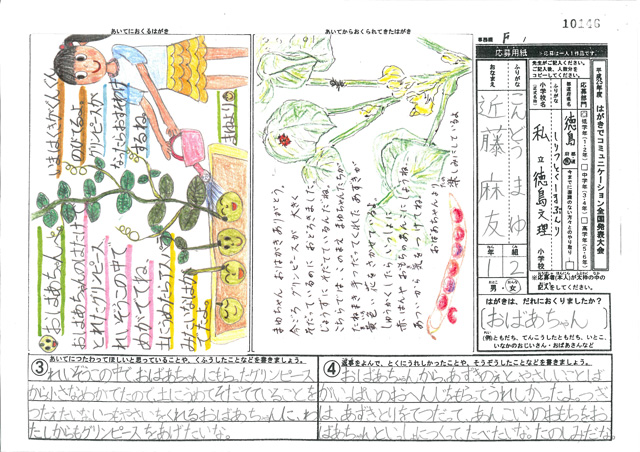 10146
事務局
応募用紙
※応募は一人1作品です。
平成25年度 はがきでコミュニケーション全国発表大会
先生がご記入ください。
ご記入後、人数分を
コピーしてください。
応募部門
低学年(1・2年)
中学年(3・4年)
高学年(5・6年)
都道府県名
徳島
小学校名
私立徳島文理小学校
ふりがな
こんどうまゆ
おなまえ
近藤麻友
1年
2組
男・女
はがきは、だれにおくりましたか?
おばあちゃん
(例)ともだち、てんこうしたともだち、いとこ、
いなかのおじいさん・おばあさんなど
あいてにおくるはがき
おばあちゃんへ
おばあちゃんのはたけで
とれたグリンピース
れいぞうこの中で
めがでてたね。
土にうめたらてんしの
みたいなはが
でたよ。
いまはぐんぐんぐん
のびてるよ。
グリンピースが
なったらおすそわけ
するね。
まゆより
あいてからおくられてきたはがき
まゆちゃん、おはがきありがとう。
今ごろ、グリンピースが大きく
そだっているので、おどろきました。
じょうずに、そだてているんだね。
こちらでは、このまえ、まゆちゃんたちが
たねまきを手つだってくれたあずきが
黄色い花をさかせているよ。
しゅうかくしたら、いっしょに
赤はんやおもちのあんこにしようね。
あつい から気をつけてね。
おばあちゃんより
楽しみにしているよ
③ あいてにつたわってほしいと思っていることや、くふうしたことなどを書きましょう。
れいぞうこの中でおばあちゃんにもらったグリンピース
から小さなめがでてたので、土にうめてそだてていることを
つたえたいな。いつもやさいをくれるおばあちゃんに、わ
たしからもグリンピースをあげたいな。
④ 返事をよんで、とくにうれしかったことや、そうぞうしたことなどを書きましょう。
おばあちゃんから、あずきのえとやさしいことば
がいっぱいのおへんじをもらってうれしかったよ。つぎ
は、あずきとりをてつだって、あんこいりのおもちをお
ばあちゃんといっしょにつくって、たべたいな。たのしみだな。